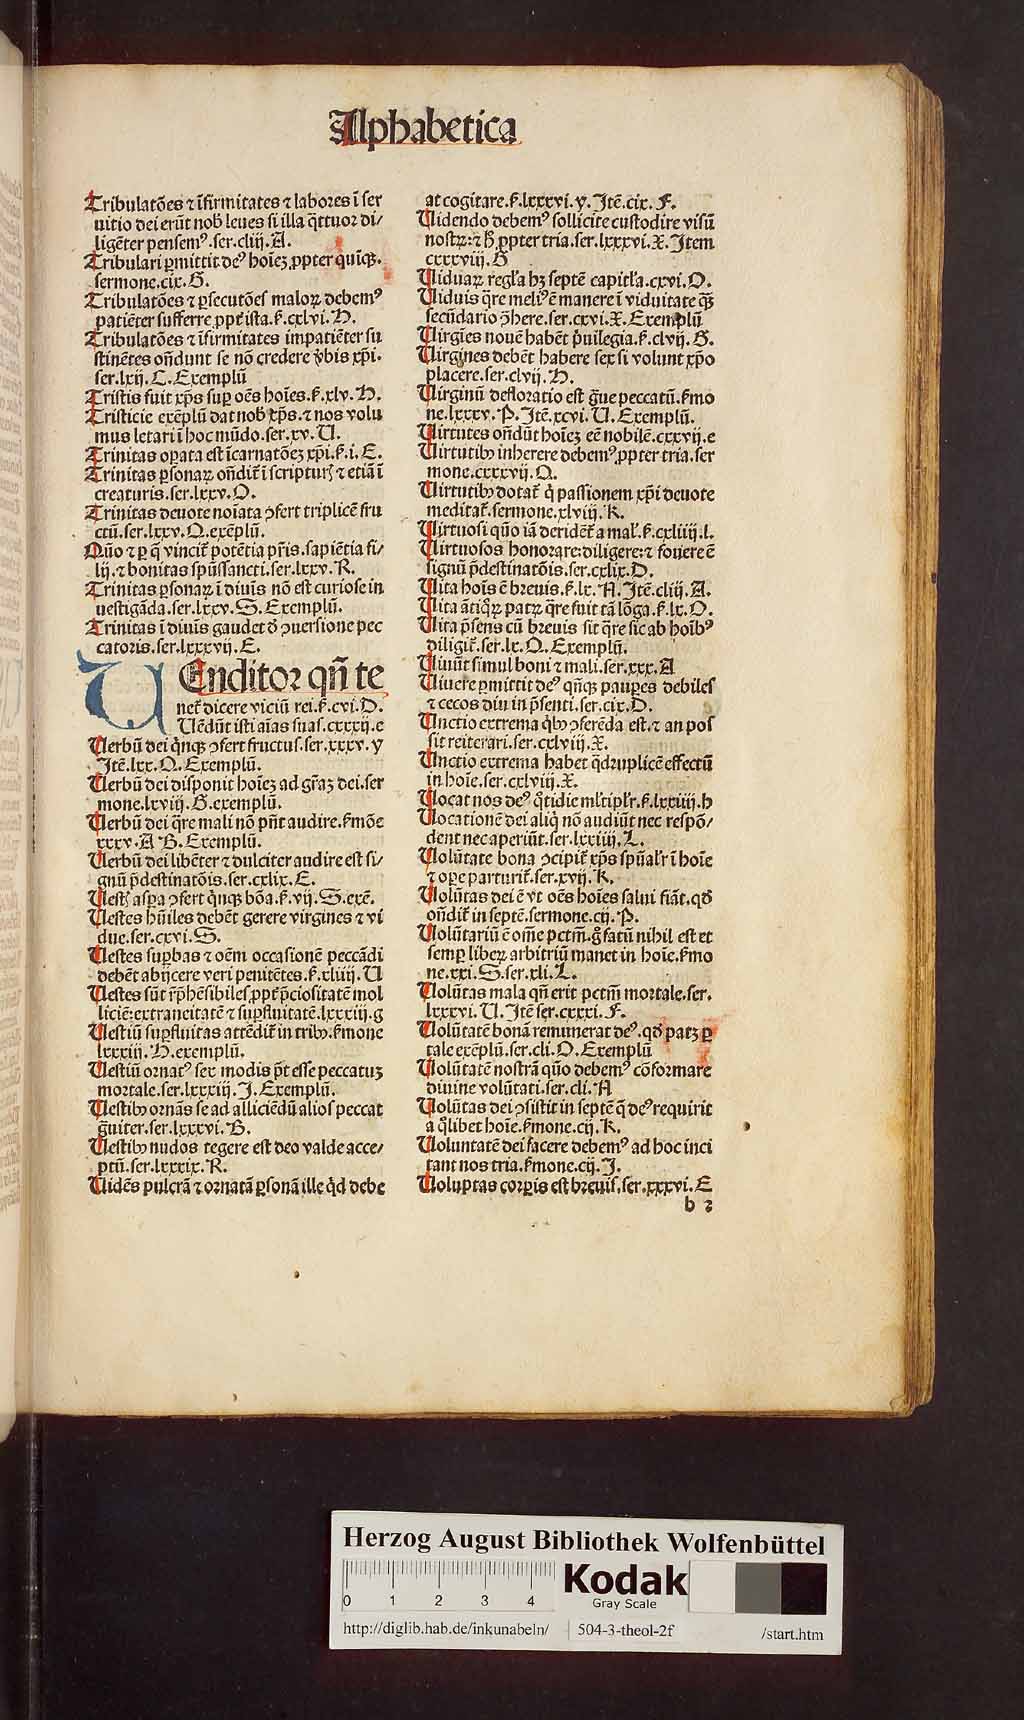 Alphabetica
Tribulatōes ⁊ īfirmitates ⁊ labores ī ser
uitio dei erūt nob̄ leues si illa q̄ttuor di/
ligēter pensemꝰ.ser.cliij.A.
Tribulari ꝑmittit deꝰ hoīeȝ ꝓpter quīqꝫ.
sermone.cix.G.
Tribulatōes ⁊ ꝑsecutōes maloꝝ debemꝰ
patiēter sufferre ꝓpt̄ ista.ẜ.cxlvi.H.
Tribulatōes ⁊ īfirmitates impatiēter su
stinētes on̄dunt se nō credere v̄bis xp̄i.
ser.lxij.C.Exemplū
Tristis fuit xp̄s suꝑ oēs hoīes.ẜ.xlv.H.
Tristicie exēplū dat nob̄ xp̄s.⁊ nos volu
mus letari ī hoc mūdo.ser.xv.U.
Trinitas oꝑata est īcarnatōeȝ xp̄i.ẜ.i.E.
Trinitas ꝑsonaꝝ on̄dit̄ ī scriptur̄ ⁊ etiā ī
creaturis.ser.lxxv.O.
Trinitas deuote noīata ꝯfert triplicē fru
ctū.ser.lxxv.Q.exēplū.
Quō ⁊ ꝑ q̄ vincit̄ potētia pr̄is.sapiētia fi/
lij.⁊ bonitas spūssancti.ser.lxxv.R.
Trinitas ꝑsonaꝝ ī diuīs nō est curiose in
uestigāda.ser.lxxv.S.Exemplū.
Trinitas ī diuīs gaudet d̄ ꝯuersione pec
catoris.ser.lxxxvij.E.
UEnditor qn̄ te
net̄ dicere viciū rei.ẜ.cvi.D.
Uēdūt isti aīas suas.cxxxij.e
Uerbū dei qͥnqꝫ ꝯfert fructus.ser.xxxv.y
Itē.lxx.Q.Exemplū.
Uerbū dei disponit hoīeȝ ad gr̄aȝ dei.ser
mone.lxviij.G.exemplū.
Uerbū dei q̄re mali nō pn̄t audire.ẜmōe
xxxv.A B.Exemplū.
Uerbū dei libēter ⁊ dulciter audire est si/
gnū p̄destinatōis.ser.cxlix.E.
Uest̄ aspa ꝯfert qͥnqꝫ bōa.ẜ.vij.S.exē.
Uestes hūiles debēt gerere virgines ⁊ vi
due.ser.cxvi.S.
Uestes suꝑbas ⁊ oēm occasionē peccādi
debēt abijcere veri penitētes.ẜ.xliiij.U
Uestes sūt rep̄hēsibiles ꝓpt̄ p̄ciositatē mol
liciē:extraneitatē ⁊ suꝑfluitatē.lxxxiij.g
Uestiū suꝑfluitas attēdit̄ in tribꝰ.ẜmone
lxxxiij.H.exemplū.
Uestiū ornatꝰ sex modis pt̄ esse peccatuȝ
mortale.ser.lxxxiij.I.Exemplū.
Uestibꝰ ornās se ad alliciēdū alios peccat
g̃uiter.ser.lxxxvi.B.
Uestibꝰ nudos tegere est deo valde acce/
ptū.ser.lxxxix.R.
Uidēs pulcrā ⁊ ornatā ꝑsonā ille qͥd debe
at cogitare.ẜ.lxxxvi.y.Itē.cix.F.
Uidendo debemꝰ sollicite custodire visū
nostꝝ:⁊ h̄ ꝓpter tria.ser.lxxxvi.X.Item
cxxxviij.G
Uiduaꝝ regl̄a hȝ septē capitl̄a.cxvi.O.
Uiduis q̄re meliꝰ ē manere ī viduitate qͣꝫ
secūdario ꝯ̄here.ser.cxvi.X.Exemplū
Uirgīes nouē habēt p̄uilegia.ẜ.clvij.G.
Uirgines debēt habere sex si volunt xp̄o
placere.ser.clvij.H.
Uirginū defloratio est g̃ue peccatū.ẜmo
ne.lxxxv.P.Itē.xcvi.U.Exemplū.
Uirtutes on̄dūt hoīeȝ eē nobilē.cxxvij.e
Uirtutibꝰ inherere debemꝰ ꝓpter tria.ser
mone.cxxxvij.Q.
Uirtutibꝰ dotat̄ qͥ passionem xp̄i deuote
meditat̄.sermone.xlviij.K.
Uirtuosi quō iā deridēt̄ a mal̄.ẜ.cxliiij.l.
Uirtuosos honorare:diligere:⁊ fouere ē
signū p̄destinatōis.ser.cxlix.D.
Uita hoīs ē breuis.ẜ.lx.A.Itē.cliij.A.
Uita ātiqͦꝝ patꝝ q̄re fuit tā lōga.ẜ.lx.O.
Uita p̄sens cū breuis sit q̄re sic ab hoībꝰ
diligit̄.ser.lx.Q.Exemplū.
Uiuūt simul boni ⁊ mali.ser.xxx.A
Uiuere ꝑmittit deꝰ qn̄qꝫ pauꝑes debiles
⁊ cecos diu in p̄senti.ser.cix.D.
Unctio extrema qͥbꝰ ꝯferēda est.⁊ an pos
sit reiterari.ser.cxlviij.X.
Unctio extrema habet qͣdruplicē effectū
in hoīe.ser.cxlviij.X.
Uocat nos deꝰ qͦtidie ml̄tiplr̄.ẜ.lxxiiij.h
Uocationē dei aliqͥ nō audiūt nec respō/
dent nec aperiūt.ser.lxxiiij.L.
Uolūtate bona ꝯcipit̄ xp̄s spūalr̄ ī hoīe
⁊ oꝑe parturit̄.ser.xvij.K.
Uolūtas dei ē vt oēs hoīes salui fiāt.qd̄
on̄dit̄ in septē.sermone.cij.P.
Uolūtariū ē om̄e pctm̄.gͦ fatū nihil est et
semꝑ liberȝ arbitriū manet in hoīe.ẜmo
ne.xxi.S.ser.xli.L.
Uolūtas mala qn̄ erit pctm̄ mortale.ser.
lxxxvi.U.Itē ser.cxxxi.F.
Uolūtatē bonā remunerat deꝰ.qd̄ patȝ ꝑ
tale exēplū.ser.cli.O.Exemplū
Uolūtatē nostrā quō debemꝰ cōformare
diuine volūtati.ser.cli.A
Uolūtas dei ꝯsistit in septē q̄ deꝰ requirit
a qͦlibet hoīe.ẜmone.cij.K.
Uoluntatē dei facere debemꝰ ad hoc inci
tant nos tria.ẜmone.cij.I.
Uoluptas corꝑis est breuis.ser.xxxvi.E
b 2
Herzog August Bibliothek Wolfenbüttel
0 1 2 3 4
Kodak
Gray Scale
http://diglib.hab.de/inkunabeln/ 504-3-theol-2f /start.htm